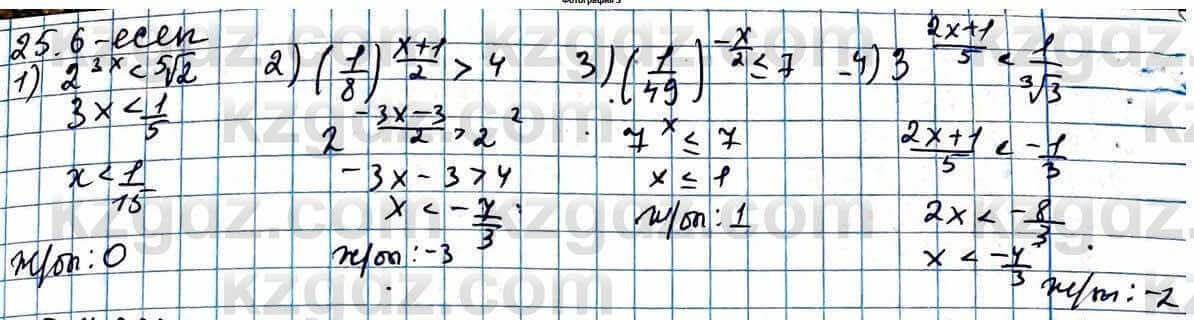 Фотография 5
25.6-есеп
1) 2^{3x} < ⁵√2
3x < 1/5
x < 1/15
ж/бп: 0
2) (1/8)^{(x+1)/2} > 4
2^{(-3x-3)/2} > 2^2
-3x-3 > 4
x < -7/3
ж/бп: -3
3) (1/49)^{-x/2} ≤ 7
7^x ≤ 7
x ≤ 1
ж/бп: 1
4) 3^{(2x+1)/5} < 1/∛3
(2x+1)/5 < -1/3
2x < -8/3
x < -4/3
ж/бп: -2
kzgdz.com